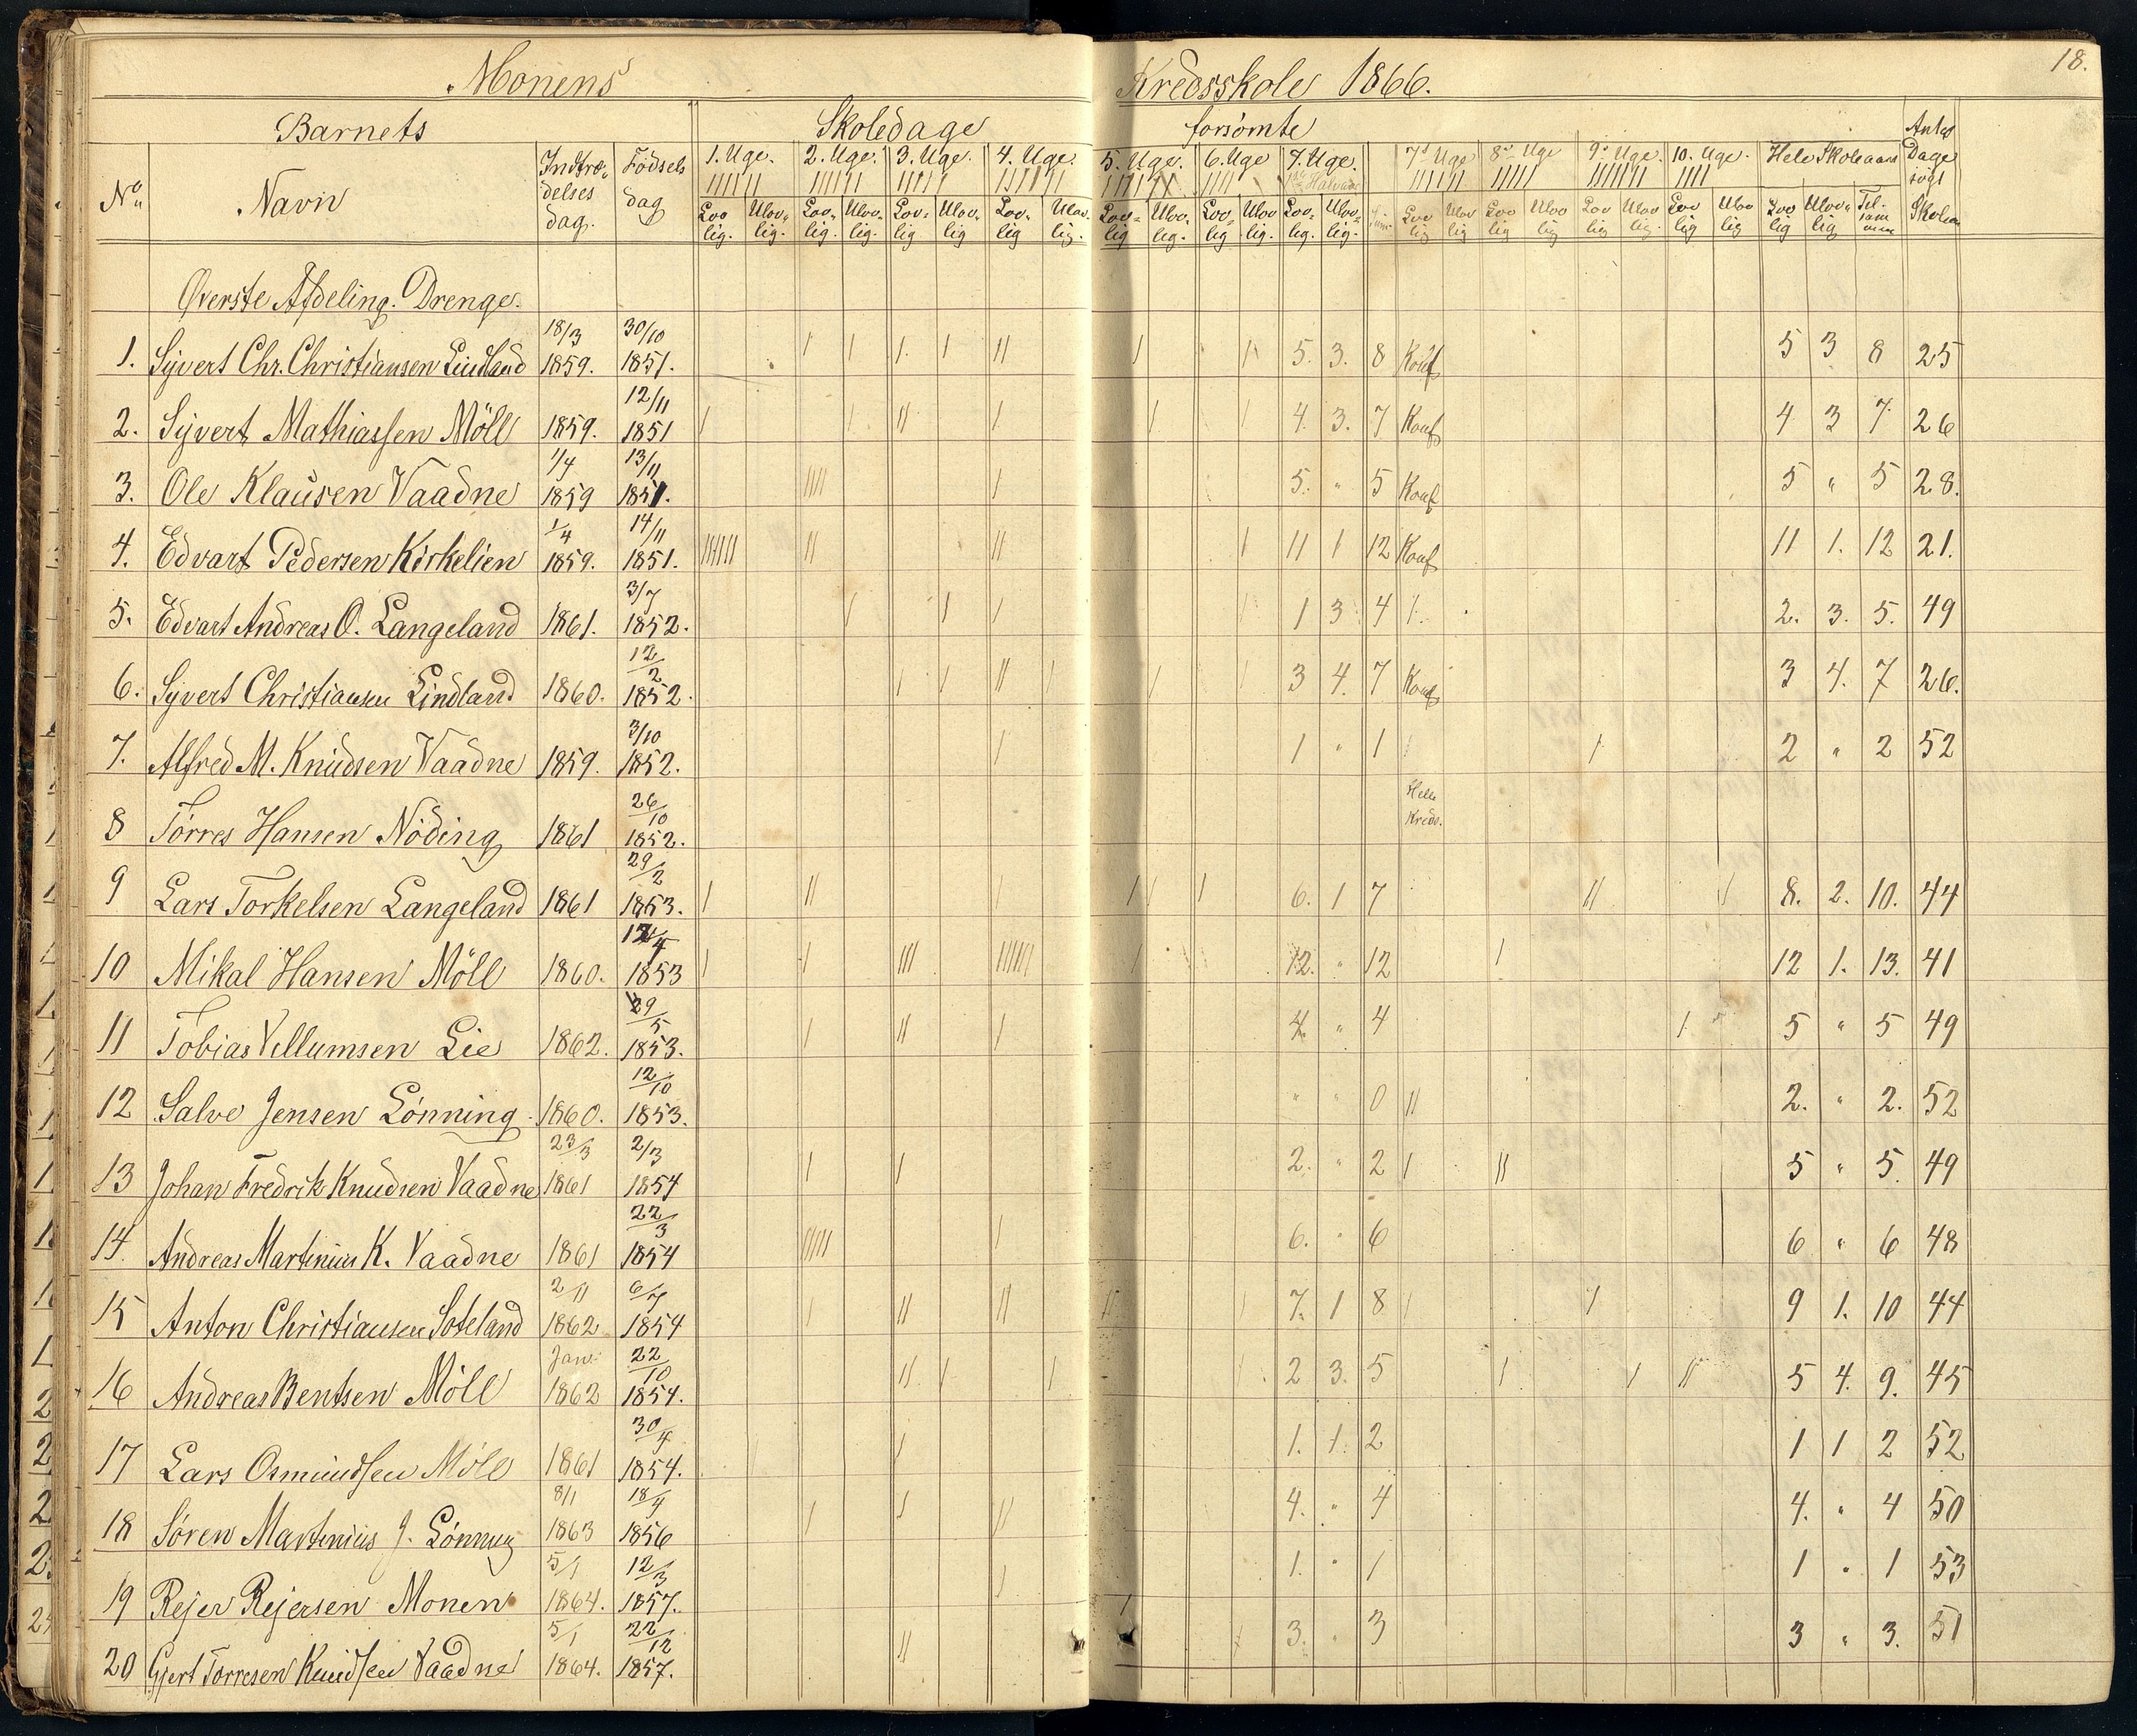 18.
Monens Kredsskole 1866.
Barnets Skoledage forsømte Antal Dage søgt Skolen
No. Navn Indtrædelses dag. Fødsels dag 1. Uge. 2. Uge. 3. Uge. 4. Uge. 5. Uge. 6. Uge 7. Uge. 7de Uge 8de Uge 9de Uge. 10. Uge. Hele Skoleaaret
Lovlig. Ulovlig. Lovlig. Ulovlig. Lovlig Ulovlig Lovlig Ulovlig. Lovlig Ulovlig. Lovlig Ulovlig. Lovlig. Ulovlig. Lovlig Ulovlig Lovlig Ulovlig Lovlig Ulovlig. Lovlig Ulovlig Lovlig Ulovlig Tilsammen
Øverste Afdeling. Drenge.
1. Syvert Chr. Christiansen Lindland 18/3 1859. 30/10 1851. 5. 3. 8 Konf 5 3 8 25
2. Syvert Mathiassen Möll 1859. 12/11 1851 4. 3. 7 Konf 4 3 7. 26
3. Ole Klausen Vaadne 1/4 1859 13/11 1851. 5. " 5 Konf 5 " 5 28.
4. Edvart Pedersen Kirkelien 1/4 1859. 14/11 1851. 11 1 12 Konf 11 1. 12 21.
5. Edvart Andreas O. Langeland 1861. 3/7 1852. 1 3 4 2. 3. 5. 49
6. Syvert Christiansen Lindland 1860. 12/2 1852. 3 4. 7 Konf 3 4. 7 26.
7. Alfred M. Knudsen Vaadne 1859. 3/10 1852. 1 " 1 2 " 2 52
8 Torres Hansen Nöding 1861 26/10 1852. Helle Kreds.
9 Lars Torkelsen Langeland 1861 29/2 1853. 6. 1 7 8. 2. 10. 44
10 Mikal Hansen Möll 1860. 1853 12. " 12 12 1. 13. 41
11 Tobias Vellumsen Lie 1862. 29/5 1853. 4 " 4 5 " 5 49
12 Salve Jensen Lönning 1860. 12/10 1853. " " 0 2. " 2. 52
13 Johan Fredrik Knudsen Vaadne 23/3 1861 2/3 1854 2. " 2 5 " 5. 49
14 Andreas Martinius K. Vaadne 1861 22/3 1854 6. " 6 6 " 6 48
15 Anton Christiansen Soteland 2/11 1862 6/7 1854 7. 1 8 9 1. 10 44
16 Andreas Bentsen Möll Jan. 1862 22/10 1854. 2 3. 5 5 4. 9. 45
17 Lars Osmundsen Möll 1861 30/4 1854. 1. 1. 2 1 1 2 52
18 Sören Martinius J. Lönning 8/1 1863 18/4 1856 4. " 4 4. " 4 50
19 Rejer Rejersen Monen 5/1 1864. 12/3 1857. 1. " 1 1 " 1 53
20 Gjert Torresen Knudsen Vaadne 5/1 1864. 22/12 1857. 3. " 3 3 " 3. 51